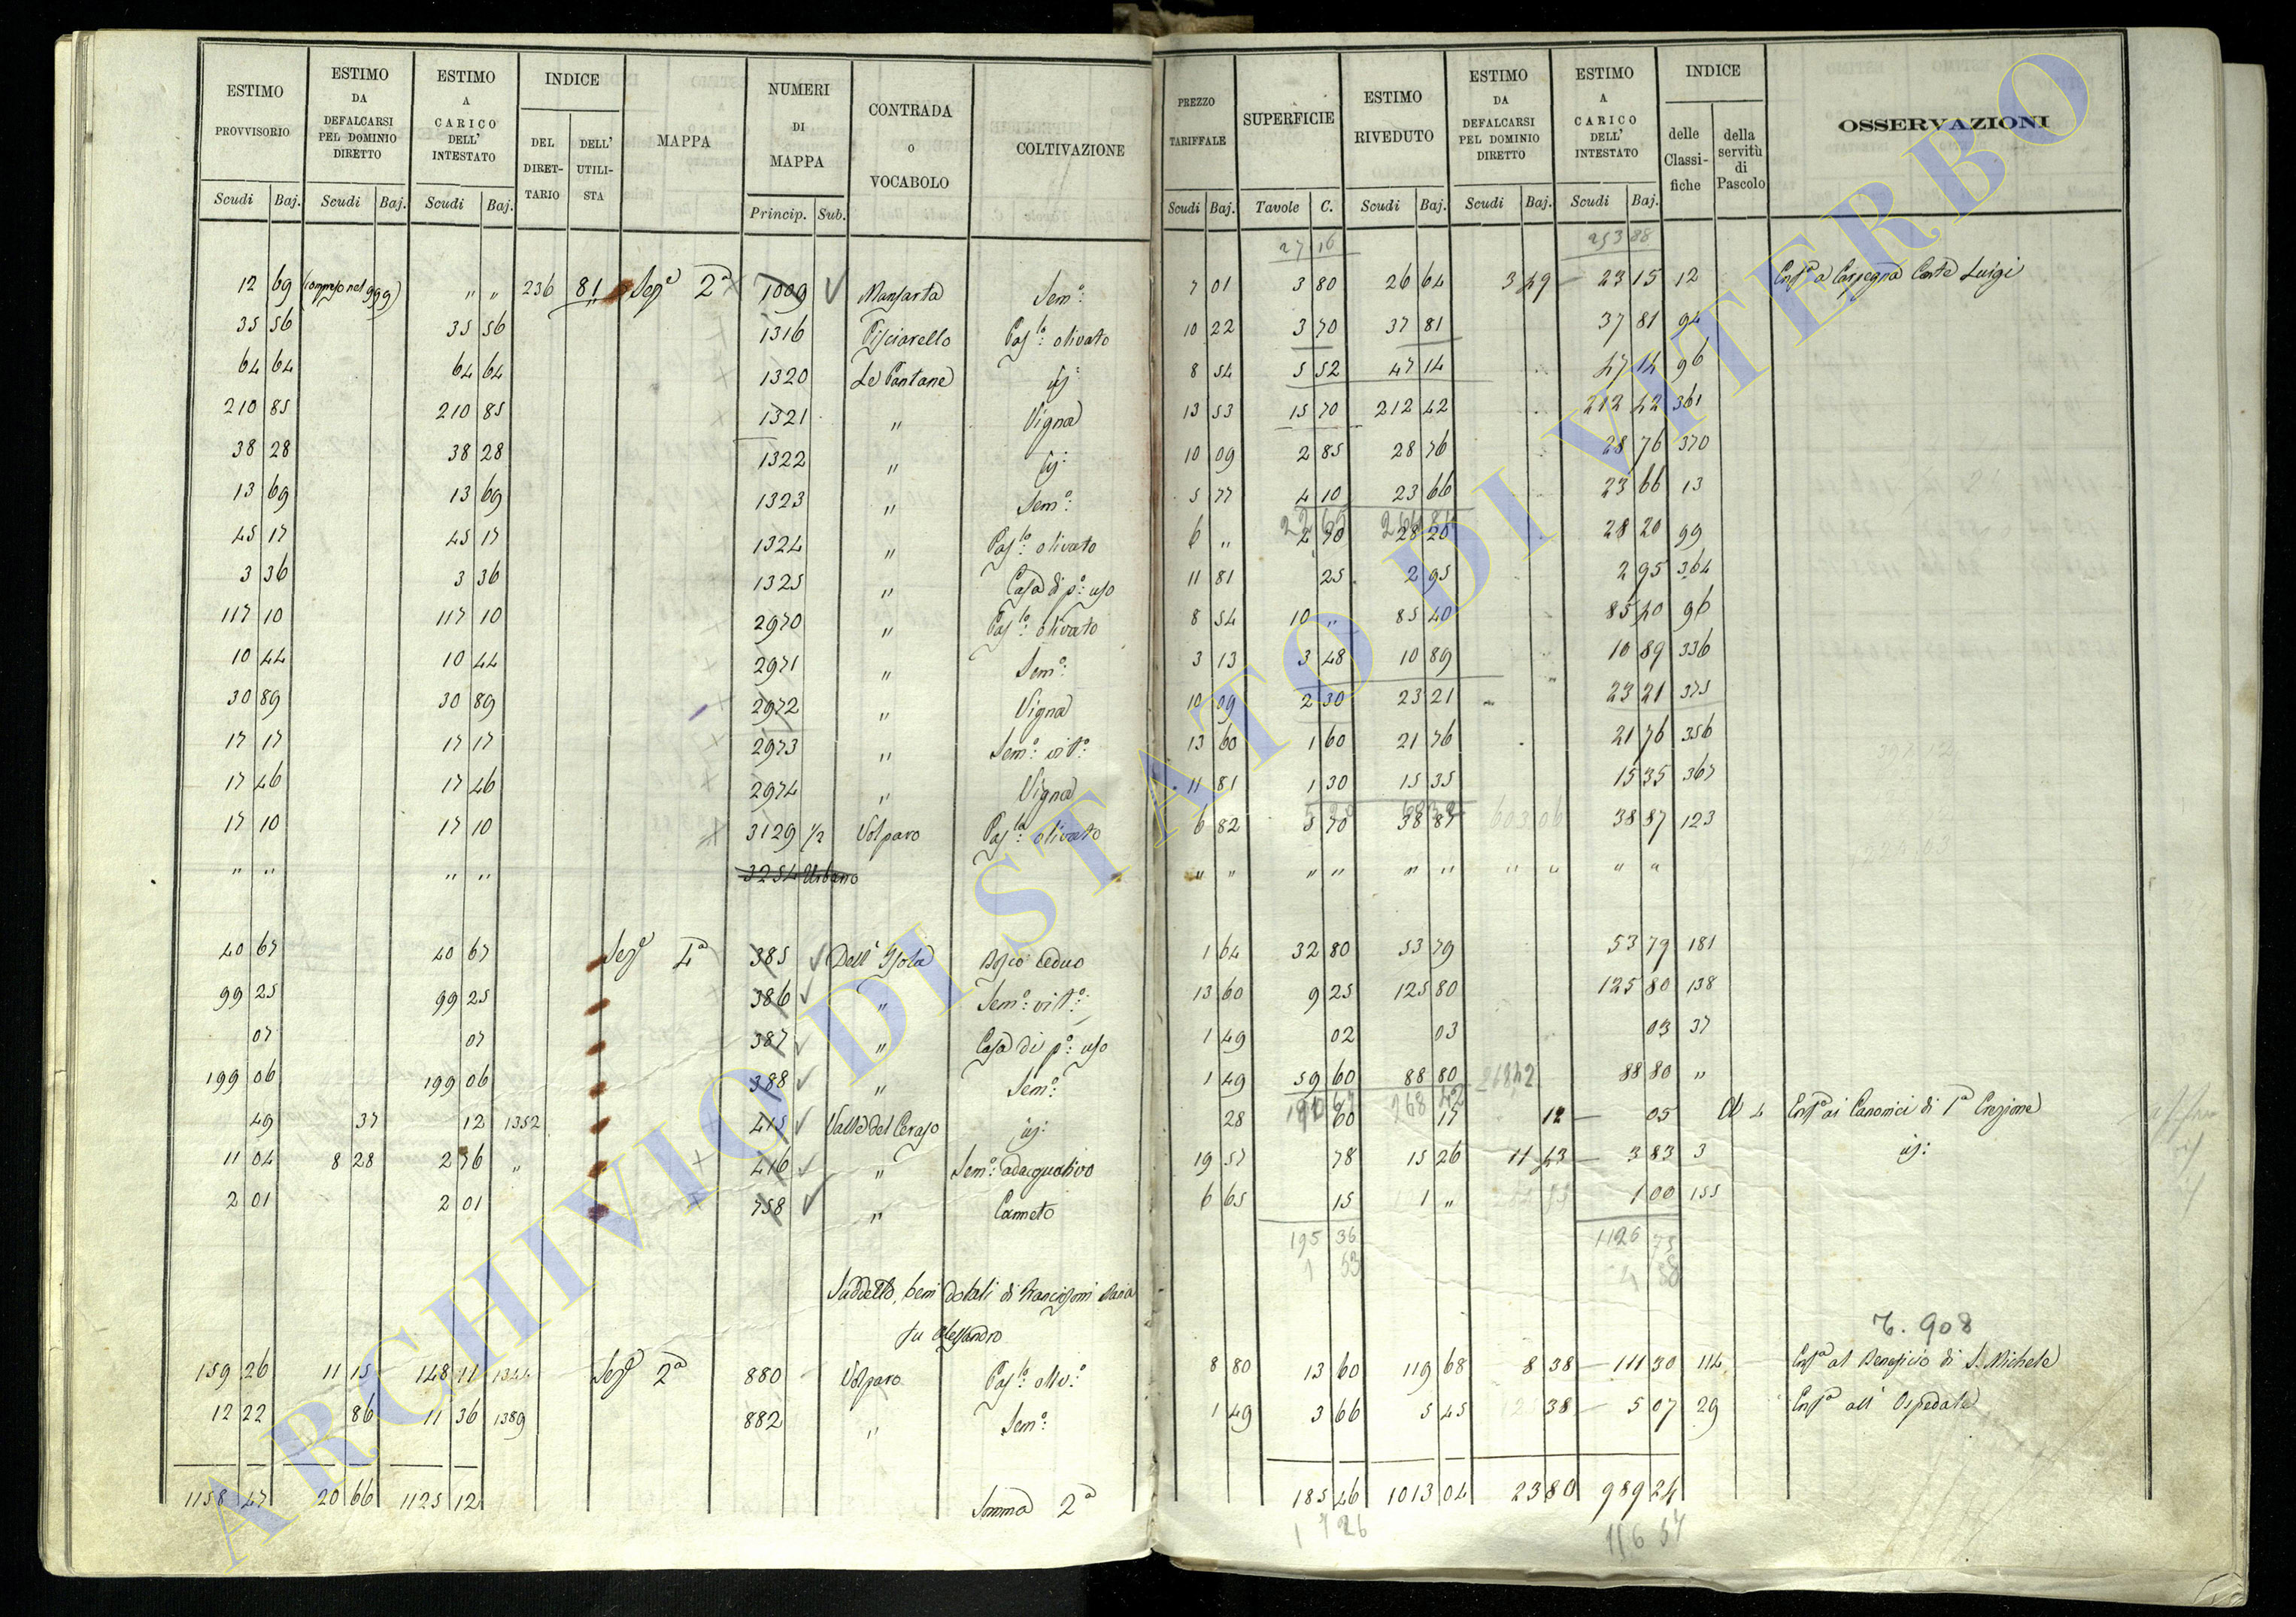 ESTIMO PROVVISORIO | ESTIMO DA DEFALCARSI PEL DOMINIO DIRETTO | ESTIMO A CARICO DELL' INTESTATO | INDICE | MAPPA | NUMERI DI MAPPA | CONTRADA o VOCABOLO | COLTIVAZIONE | PREZZO TARIFFALE | SUPERFICIE | ESTIMO RIVEDUTO | ESTIMO DA DEFALCARSI PEL DOMINIO DIRETTO | ESTIMO A CARICO DELL' INTESTATO | INDICE | OSSERVAZIONI
DEL DIRETTARIO | DELL' UTILISTA | delle Classifiche | della servitù di Pascolo
Scudi Baj. | Scudi Baj. | Scudi Baj. | Princip. Sub. | Scudi Baj. | Tavole C. | Scudi Baj. | Scudi Baj. | Scudi Baj.
27 16 | 253 88
12 69 | (compreso nel 999) | " " | 236 | 81 | Sez.e 2a | 1009 | Mansarta | Sem.o: | 7 01 | 3 80 | 26 64 | 3 49 | 23 15 | 12 | Enf.a a Carpegna Conte Luigi
35 56 | 35 56 | 1316 | Pisciarello | Pas.lo: olivato | 10 22 | 3 70 | 37 81 | 37 81 | 94
64 64 | 64 64 | 1320 | Le Pantane | | 8 54 | 5 52 | 47 14 | 47 14 | 96
210 85 | 210 85 | 1321 | " | Vigna | 13 53 | 15 70 | 212 42 | 212 42 | 361
38 28 | 38 28 | 1322 | " | | 10 09 | 2 85 | 28 76 | 28 76 | 370
13 69 | 13 69 | 1323 | " | Sem.o: | 5 77 | 4 10 | 23 66 | 23 66 | 13
45 17 | 45 17 | 1324 | " | Pas.lo: olivato | 6 " | 4 70 | 28 20 | 28 20 | 99
3 36 | 3 36 | 1325 | " | Casa di p.o: uso | 11 81 | 25 | 2 95 | 2 95 | 364
117 10 | 117 10 | 2970 | " | Pas.lo: olivato | 8 54 | 10 " | 85 40 | 85 40 | 96
10 44 | 10 44 | 2971 | " | Sem.o: | 3 13 | 3 48 | 10 89 | 10 89 | 336
30 89 | 30 89 | 2972 | " | Vigna | 10 09 | 2 30 | 23 21 | 23 21 | 375
17 17 | 17 17 | 2973 | " | Sem.o: vit.o: | 13 60 | 1 60 | 21 76 | 21 76 | 356
17 46 | 17 46 | 2974 | " | Vigna | 11 81 | 1 30 | 15 35 | 15 35 | 367
17 10 | 17 10 | 3129 1/2 | Volparo | Pas.lo: olivato | 6 82 | 5 70 | 38 87 | 603 06 | 38 87 | 123
" " | " " | 3254 Urbano | " " | " " | " " | " " | " "
40 67 | 40 67 | Sez.e 4a | 385 | Dell' Isola | Bosco Ceduo | 1 64 | 32 80 | 53 79 | 53 79 | 181
99 25 | 99 25 | 386 | " | Sem.o: vit.o: | 13 60 | 9 25 | 125 80 | 125 80 | 138
07 | 07 | 387 | " | Casa di p.o: uso | 1 49 | 02 | 03 | 03 | 37
199 06 | 199 06 | 388 | " | Sem.o: | 1 49 | 59 60 | 88 80 | 268 42 | 88 80 | "
49 | 37 | 12 | 1352 | 415 | Valle del Ceraso | | 28 | 60 | 17 | 12 | 05 | 4 | Enf.a ai Canonici di 1a Erezione
11 04 | 8 28 | 2 76 | " | 416 | " | Sem.o: adacquativo | 19 57 | 78 | 15 26 | 11 43 | 3 83 | 3
2 01 | 2 01 | 758 | " | Canneto | 6 65 | 15 | 1 " | 1 00 | 155
195 36 | 1126 75
1 53
Suddetto, beni dotali di Maria
fu Alessandro
T. 908
159 26 | 11 15 | 148 11 | 1344 | Sez.e 2a | 880 | Volparo | Pas.lo: oliv.o: | 8 80 | 13 60 | 119 68 | 8 38 | 111 30 | 114 | Enf.a al Beneficio di S. Michele
12 22 | 86 | 11 36 | 1389 | 882 | " | Sem.o: | 1 49 | 3 66 | 5 45 | 38 | 5 07 | 29 | Enf.a all' Ospedale
1158 47 | 20 66 | 1125 12 | Somma 2a | 185 46 | 1013 04 | 23 80 | 989 24
1 7 26 | 116 57
ARCHIVIO DI STATO DI VITERBO